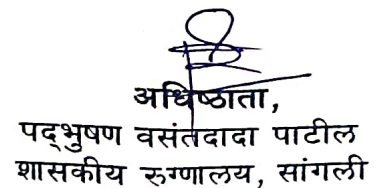 अधिष्ठाता,
पद्भुषण वसंतदादा पाटील
शासकीय रुग्णालय, सांगली